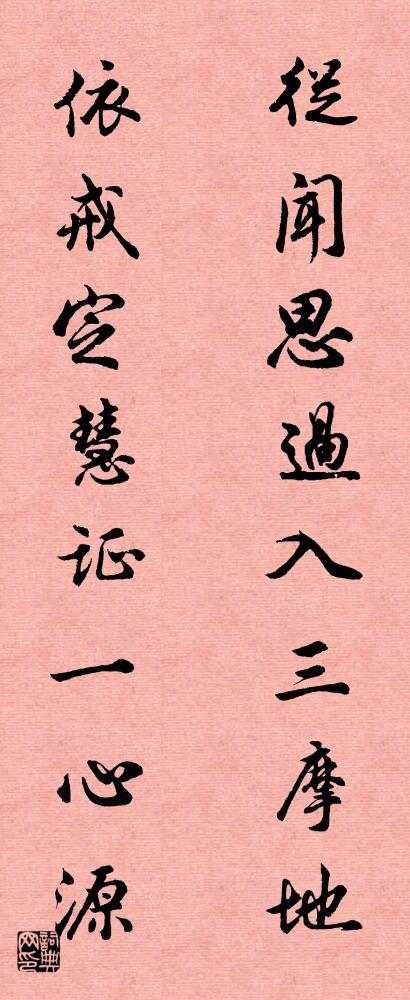 從聞思過入三摩地
依戒定慧证一心源